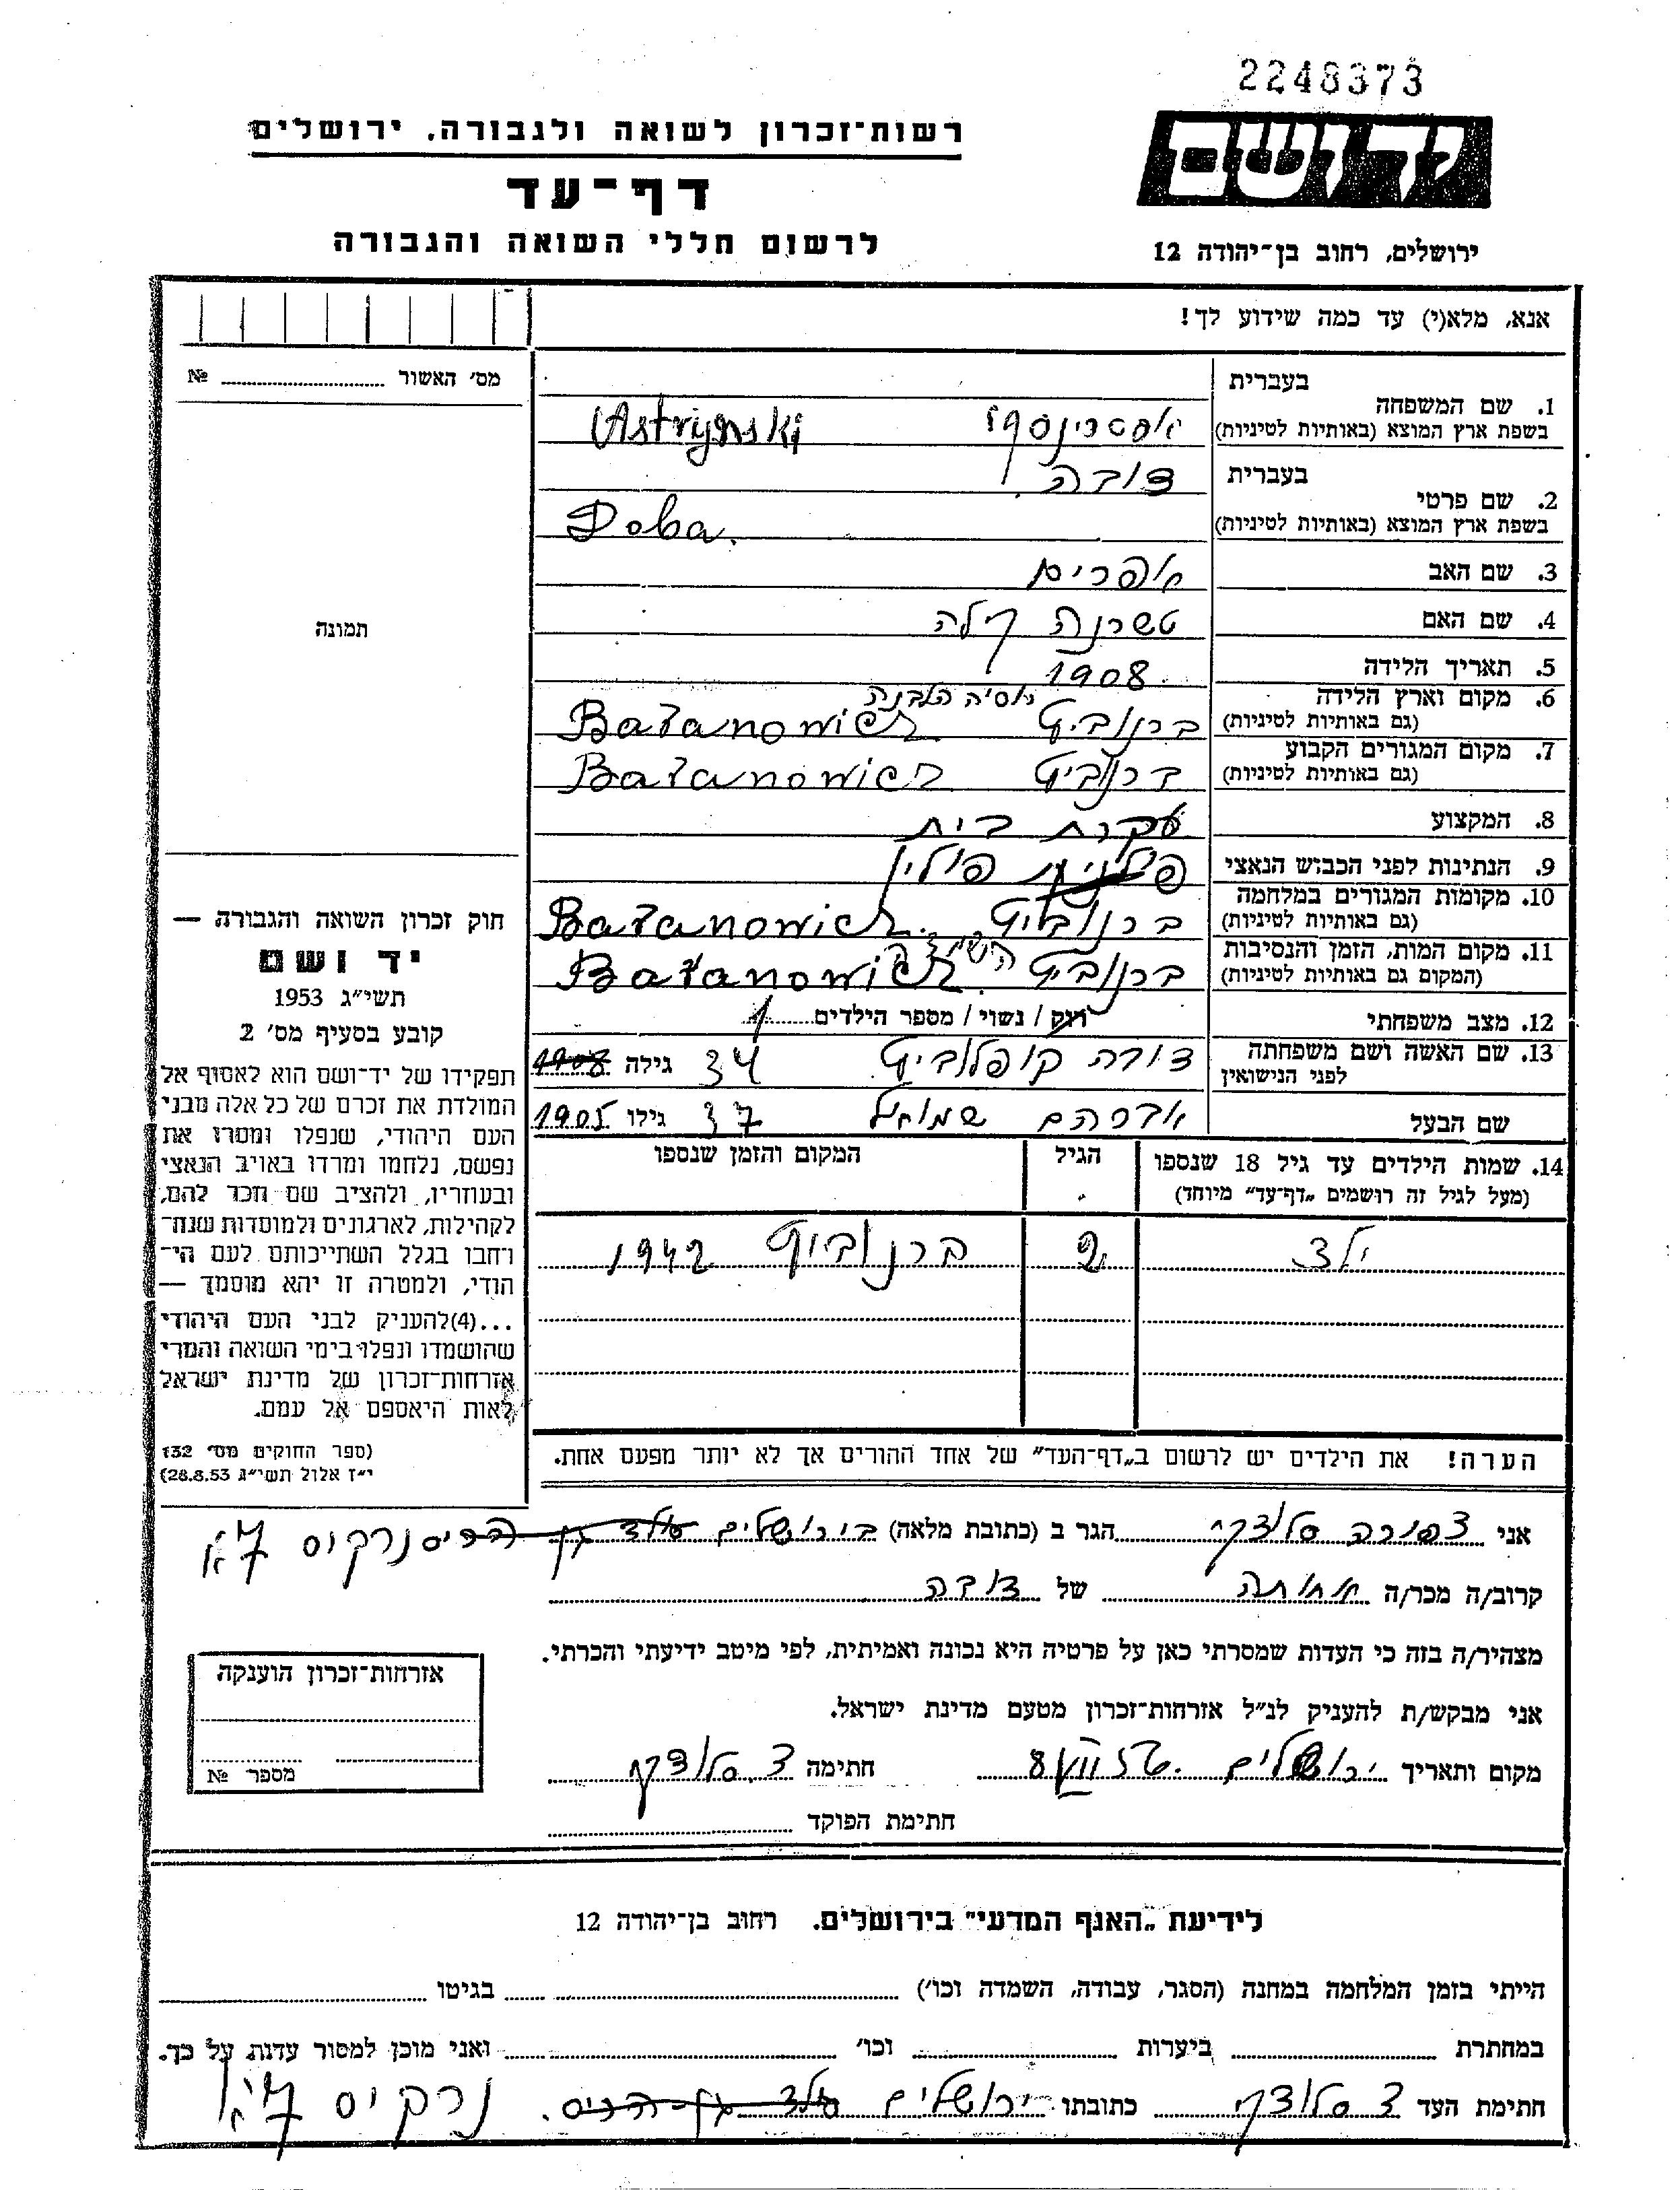 2248373
יד ושם
רשות־זכרון לשואה ולגבורה, ירושלים
דף־עד
לרשום חללי השואה והגבורה
ירושלים, רחוב בן־יהודה 12
אנא, מלא(י) עד כמה שידוע לך!
מס׳ האשור № 
תמונה
בעברית
1. שם המשפחה
בשפת ארץ המוצא (באותיות לטיניות)
אסטרינסקי Astrijnski
בעברית
2. שם פרטי
בשפת ארץ המוצא (באותיות לטיניות)
דובה
Doba.
3. שם האב אפרים
4. שם האם טשרנה קילה
5. תאריך הלידה 1908
6. מקום וארץ הלידה
(גם באותיות לטיניות)
רוסיה הלבנה
ברנוביץ Baranowich
7. מקום המגורים הקבוע
(גם באותיות לטיניות)
ברנוביץ Baranowich
8. המקצוע עקרת בית
9. הנתינות לפני הכבוש הנאצי פולין
10. מקומות המגורים במלחמה
(גם באותיות לטיניות)
ברנוביץ Baranowich.
11. מקום המות, הזמן והנסיבות
(המקום גם באותיות לטיניות)
ברנוביץ Baranowich.
12. מצב משפחתי רווק / נשוי / מספר הילדים 1
13. שם האשה ושם משפחתה
לפני הנישואין
דובה קופלוביץ 34 גילה 1908
שם הבעל אברהם שמואל 37 גילו 1905
14. שמות הילדים עד גיל 18 שנספו
(מעל לגיל זה רושמים „דף־עד״ מיוחד)
הגיל
המקום והזמן שנספו
ילד 2 ברנוביץ 1942
הערה! את הילדים יש לרשום ב„דף־העד״ של אחד ההורים אך לא יותר מפעם אחת.
חוק זכרון השואה והגבורה —
יד ושם
תשי״ג 1953
קובע בסעיף מס׳ 2
תפקידו של יד־ושם הוא לאסוף אל
המולדת את זכרם של כל אלה מבני
העם היהודי, שנפלו ומסרו את
נפשם, נלחמו ומרדו באויב הנאצי
ובעוזריו, ולהציב שם וזכר להם,
לקהילות, לארגונים ולמוסדות שנח־
רבו בגלל השתייכותם לעם הי־
הודי, ולמטרה זו יהא מוסמך —
...(4)להעניק לבני העם היהודי
שהושמדו ונפלו בימי השואה והמרי
אזרחות־זכרון של מדינת ישראל
לאות היאספם אל עמם.
(ספר החוקים מס׳ 132
י״ז אלול תשי״ג 28.8.53)
אני צפורה סלוצקי הגר ב (כתובת מלאה) בירושלים נרקיס
קרוב/ה מכר/ה אחותה של דובה
מצהיר/ה בזה כי העדות שמסרתי כאן על פרטיה היא נכונה ואמיתית, לפי מיטב ידיעתי והכרתי.
אני מבקש/ת להעניק לנ״ל אזרחות־זכרון מטעם מדינת ישראל.
מקום ותאריך ירושלים חתימה צ. סלוצקי
חתימת הפוקד
אזרחות־זכרון הוענקה
מספר №
לידיעת „האגף המדעי״ בירושלים. רחוב בן־יהודה 12
הייתי בזמן המלחמה במחנה (הסגר, עבודה, השמדה וכו׳) בגיטו
במחתרת ביערות וכו׳ ואני מוכן למסור עדות על כך.
חתימת העד צ סלוצקי כתובתו ירושלים נרקיס